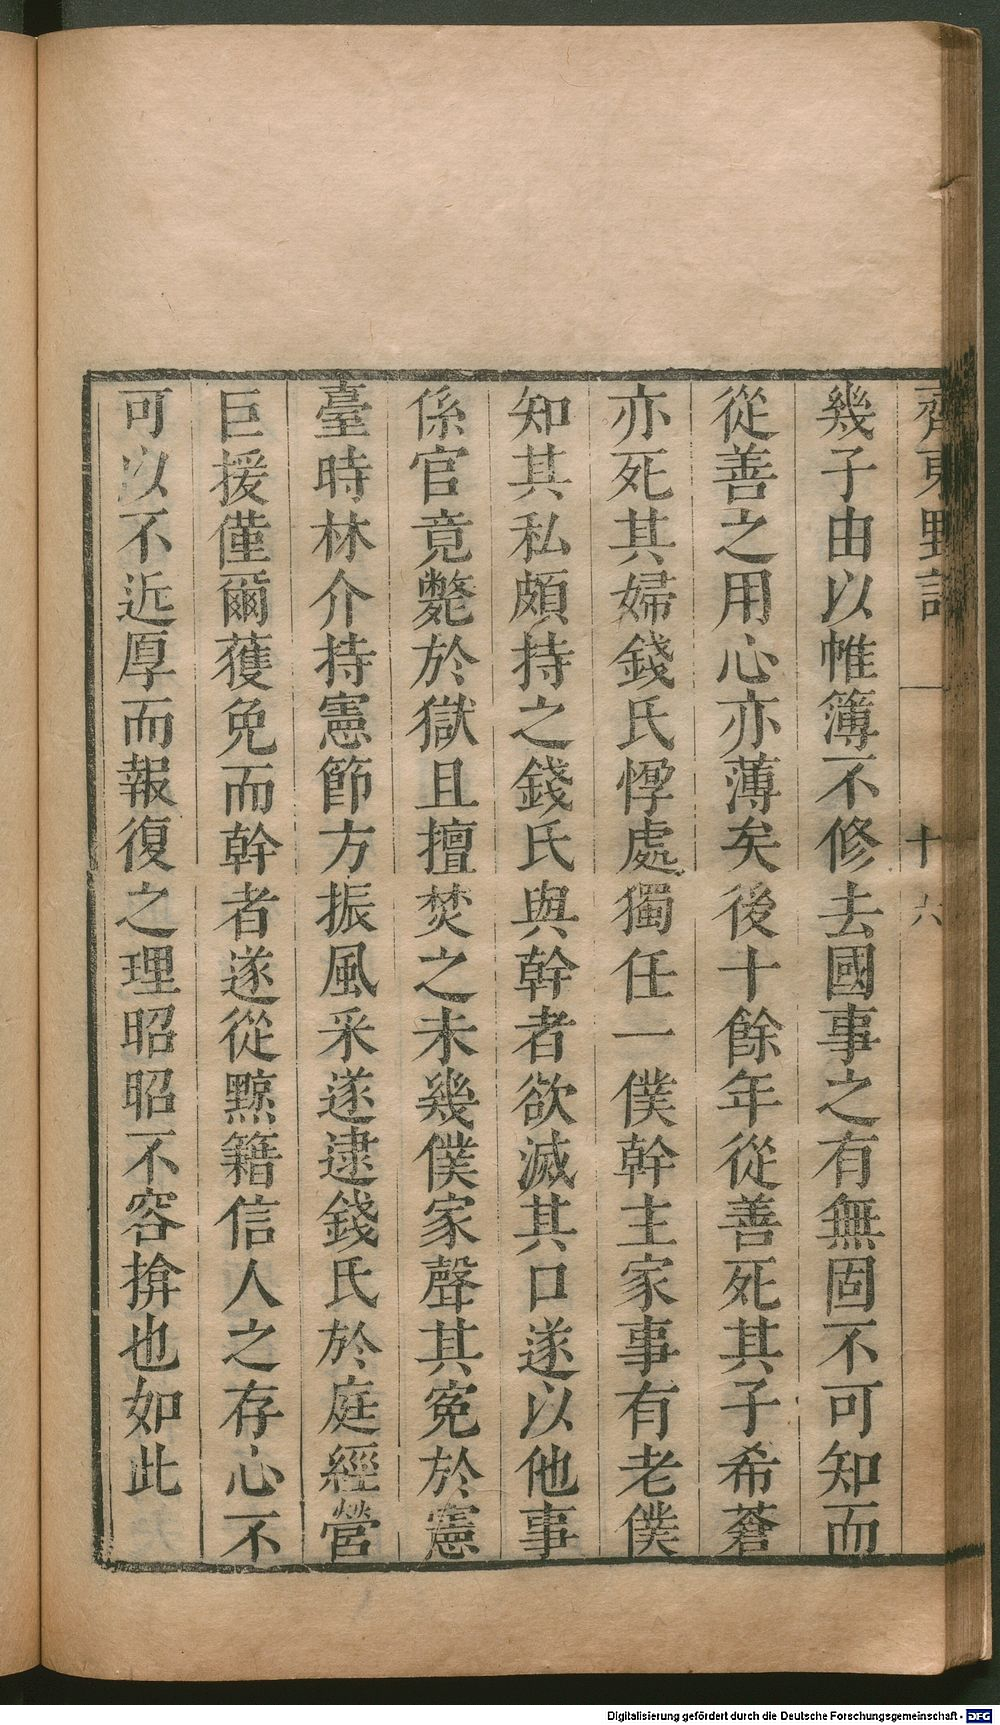 齊東野語
十六
幾子由以帷簿不修去國事之有無固不可知而
從善之用心亦薄矣後十餘年從善死其子希蒼
亦死其婦錢氏惸處獨任一僕幹主家事有老僕
知其私頗持之錢氏與幹者欲滅其口遂以他事
係官竟斃於獄且擅焚之未幾僕家聲其冤於憲
臺時林介持憲節方振風采遂逮錢氏於庭經營
巨援僅爾獲免而幹者遂從黥籍信人之存心不
可以不近厚而報復之理昭昭不容揜也如此
Digitalisierung gefördert durch die Deutsche Forschungsgemeinschaft - DFG